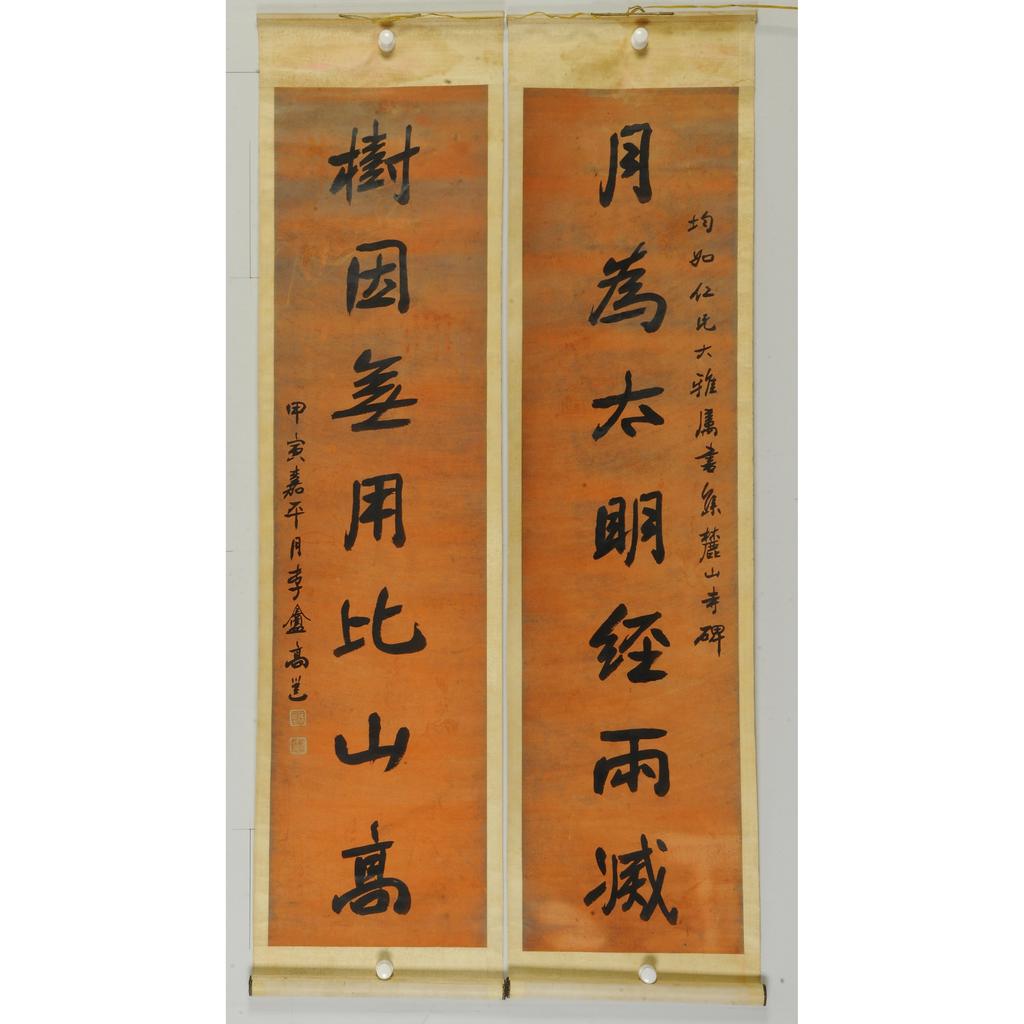 均如仁兄大雅屬書集麓山寺碑
月為太明經雨滅
樹因無用比山高
甲寅嘉平月李盦高邕